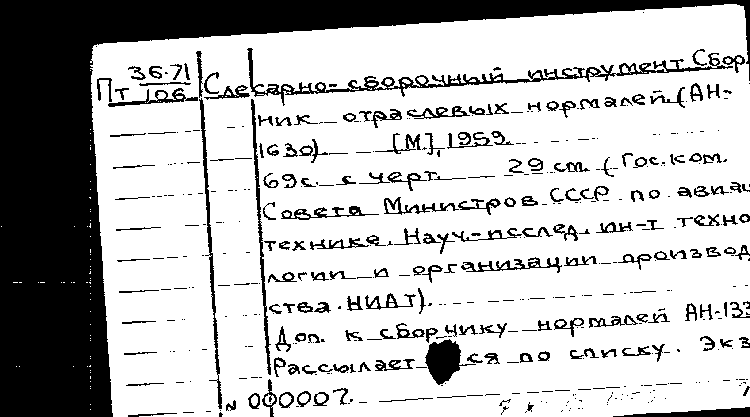 Пт 36-71/106 Слесарно-сборочный инструмент. Сбор
ник отраслевых нормалей. (АН-
1630). [М], 1959.
69с. с черт. 29 см. (Гос. ком.
Совета Министров СССР по авиац
технике. Науч.-исслед. ин-т техно
логии и организации производ
ства. НИАТ).
Доп. к сборнику нормалей АН-133
Рассылается по списку. Экз
N 000007.